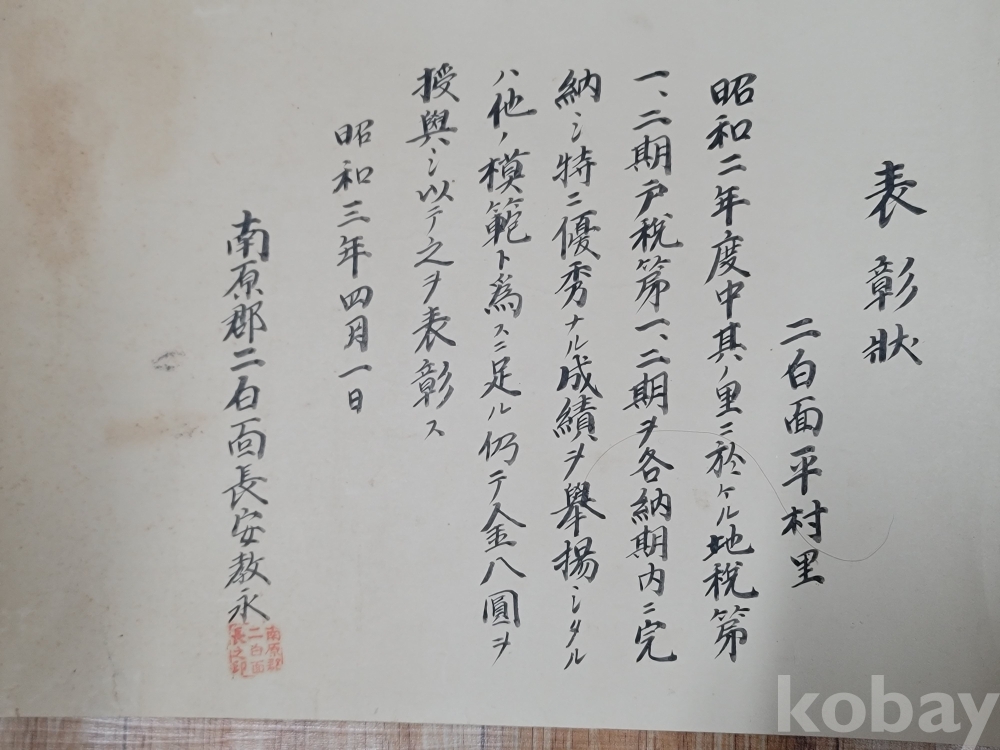 表彰状
二白面平村里
昭和二年度中其ノ里ニ於ケル地稅第
一、二期戸稅第一、二期ヲ各納期内ニ完
納シ特ニ優秀ナル成績ヲ擧揚シタル
ハ他ノ模範ト爲スニ足ル仍テ金八圓ヲ
授與シ以テ之ヲ表彰ス
昭和三年四月一日
南原郡二白面長安敎永
南原郡
二白面
長之印
kobay